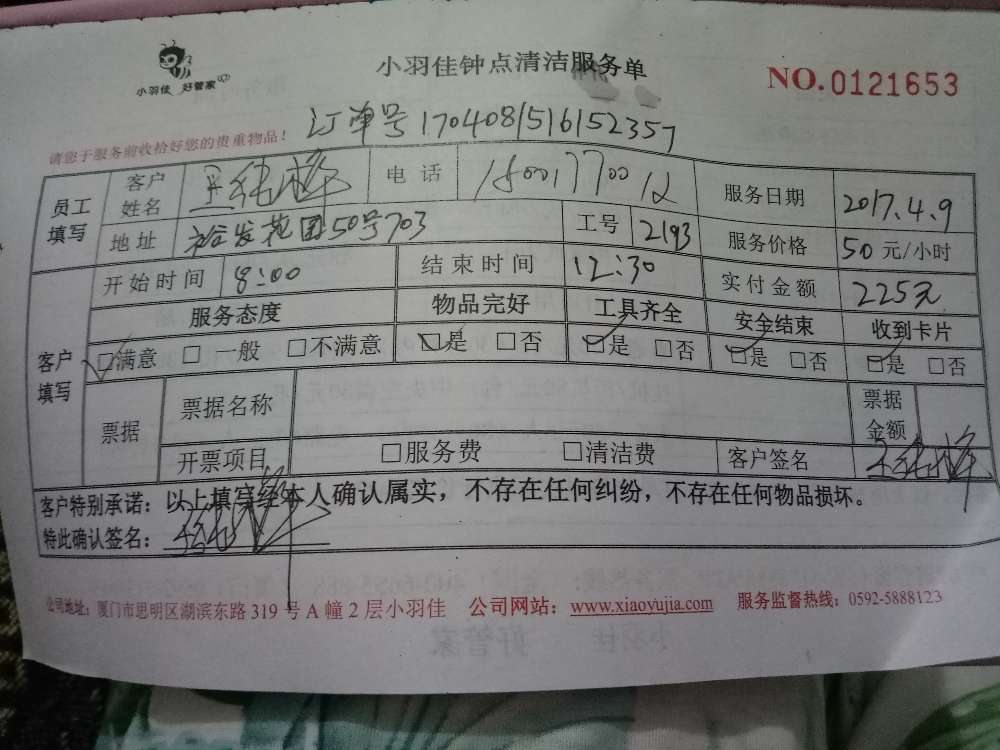 小羽佳 好管家
小羽佳钟点清洁服务单
NO.0121653
请您于服务前收拾好您的贵重物品！
订单号1704081516152357
员工填写 客户姓名 王 电话 服务日期 2017.4.9
地址 裕发花园50号703 工号 2193 服务价格 50元/小时
客户填写 开始时间 8:00 结束时间 12:30 实付金额 225元
服务态度 物品完好 工具齐全 安全结束 收到卡片
☑满意 □一般 □不满意 ☑是 □否 ☑是 □否 ☑是 □否 ☑是 □否
票据 票据名称 票据金额
开票项目 □服务费 □清洁费 客户签名
客户特别承诺：以上填写经本人确认属实，不存在任何纠纷，不存在任何物品损坏。
特此确认签名：
公司地址：厦门市思明区湖滨东路319号A幢2层小羽佳 公司网站：www.xiaoyujia.com 服务监督热线：0592-5888123